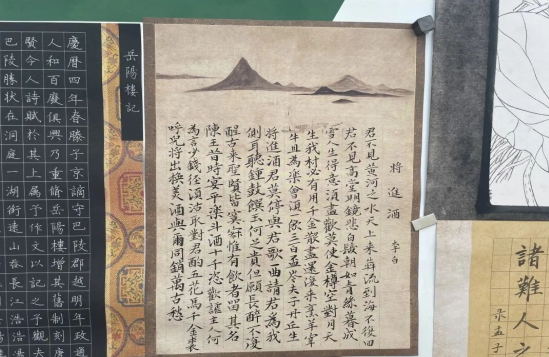 諸難人之
录孟子
将進酒
李白
君不見黄河之水天上来奔流到海不復回
君不見高堂明鏡悲白髮朝如青絲暮成
雪人生得意須盡歡莫使金樽空對月天
生我材必有用千金散盡還復来烹羊宰
牛且為樂會須一飲三百盃岑夫子丹丘生
将進酒君莫停與君歌一曲請君為我
側耳聽鐘鼓饌玉何足貴但願長醉不復
醒古来聖賢皆寂寞惟有飲者留其名
陳王昔時宴平樂斗酒十千恣歡謔主人何
為言少錢徑須沽取對君酌五花馬千金裘
呼兒将出換美酒與爾同銷萬古愁
岳陽樓記
慶曆四年春滕子京謫守巴陵郡越明年政通
人和百廢俱興乃重修岳陽樓增其舊制刻唐
賢今人詩賦於其上屬予作文以記之予觀夫
巴陵勝狀在洞庭一湖銜遠山吞長江浩浩